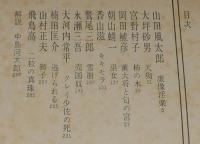 目次
山田風太郎 虚像淫楽
大坪砂男 天狗
宮野村子 柿の木
岡田鯱彦 薫大将と匂の宮
朝山蜻一 巫女
香山滋 キキモラ
鷲尾三郎 雪崩
永瀬三吾 売国奴
大河内常平 クレイ少佐の死
楠田匡介 逃げられる
山村正夫 獅子
飛鳥高 二粒の真珠
解説 中島河太郎